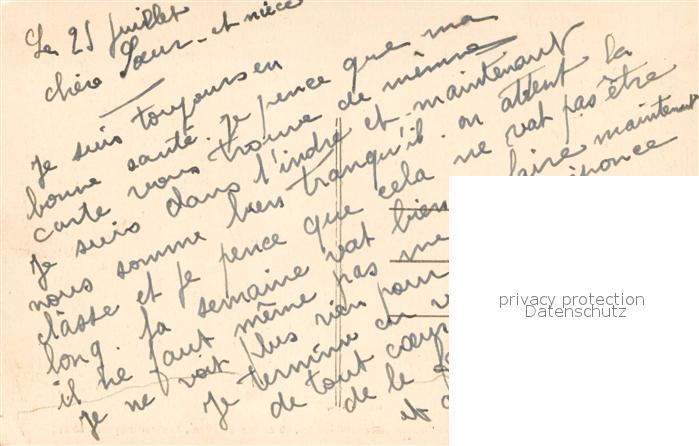 Le 25 juillet
chère Sœur et nièce
Je suis toujours en
bonne santé. Je pence que ma
carte vous trouve de mêmme
Je suis dans l'indre et maintenant
nous somme bien tranqu'il. on attent la
classe et je pence que cela ne vat pas être
long. la semaine vat bien faire maintenant
il ne faut même pas me réponce
Je ne voit plus rien pour
Je termine en
de tout cœur
de le
et
privacy protection
Datenschutz